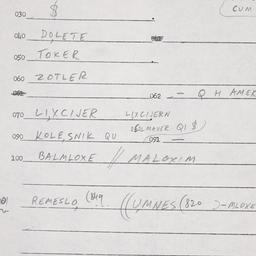 030 $
CUM
040 DOLETE
050 TOKER
060 ZOTLER
062 — Q H AMER
070 LIXCIJER LIXCIJERN
090 KOLESNIK QU 092 —
100 BALMLOXE // MALOXIM
REMESLO (849. ((UMNES (820 )-MLOXE